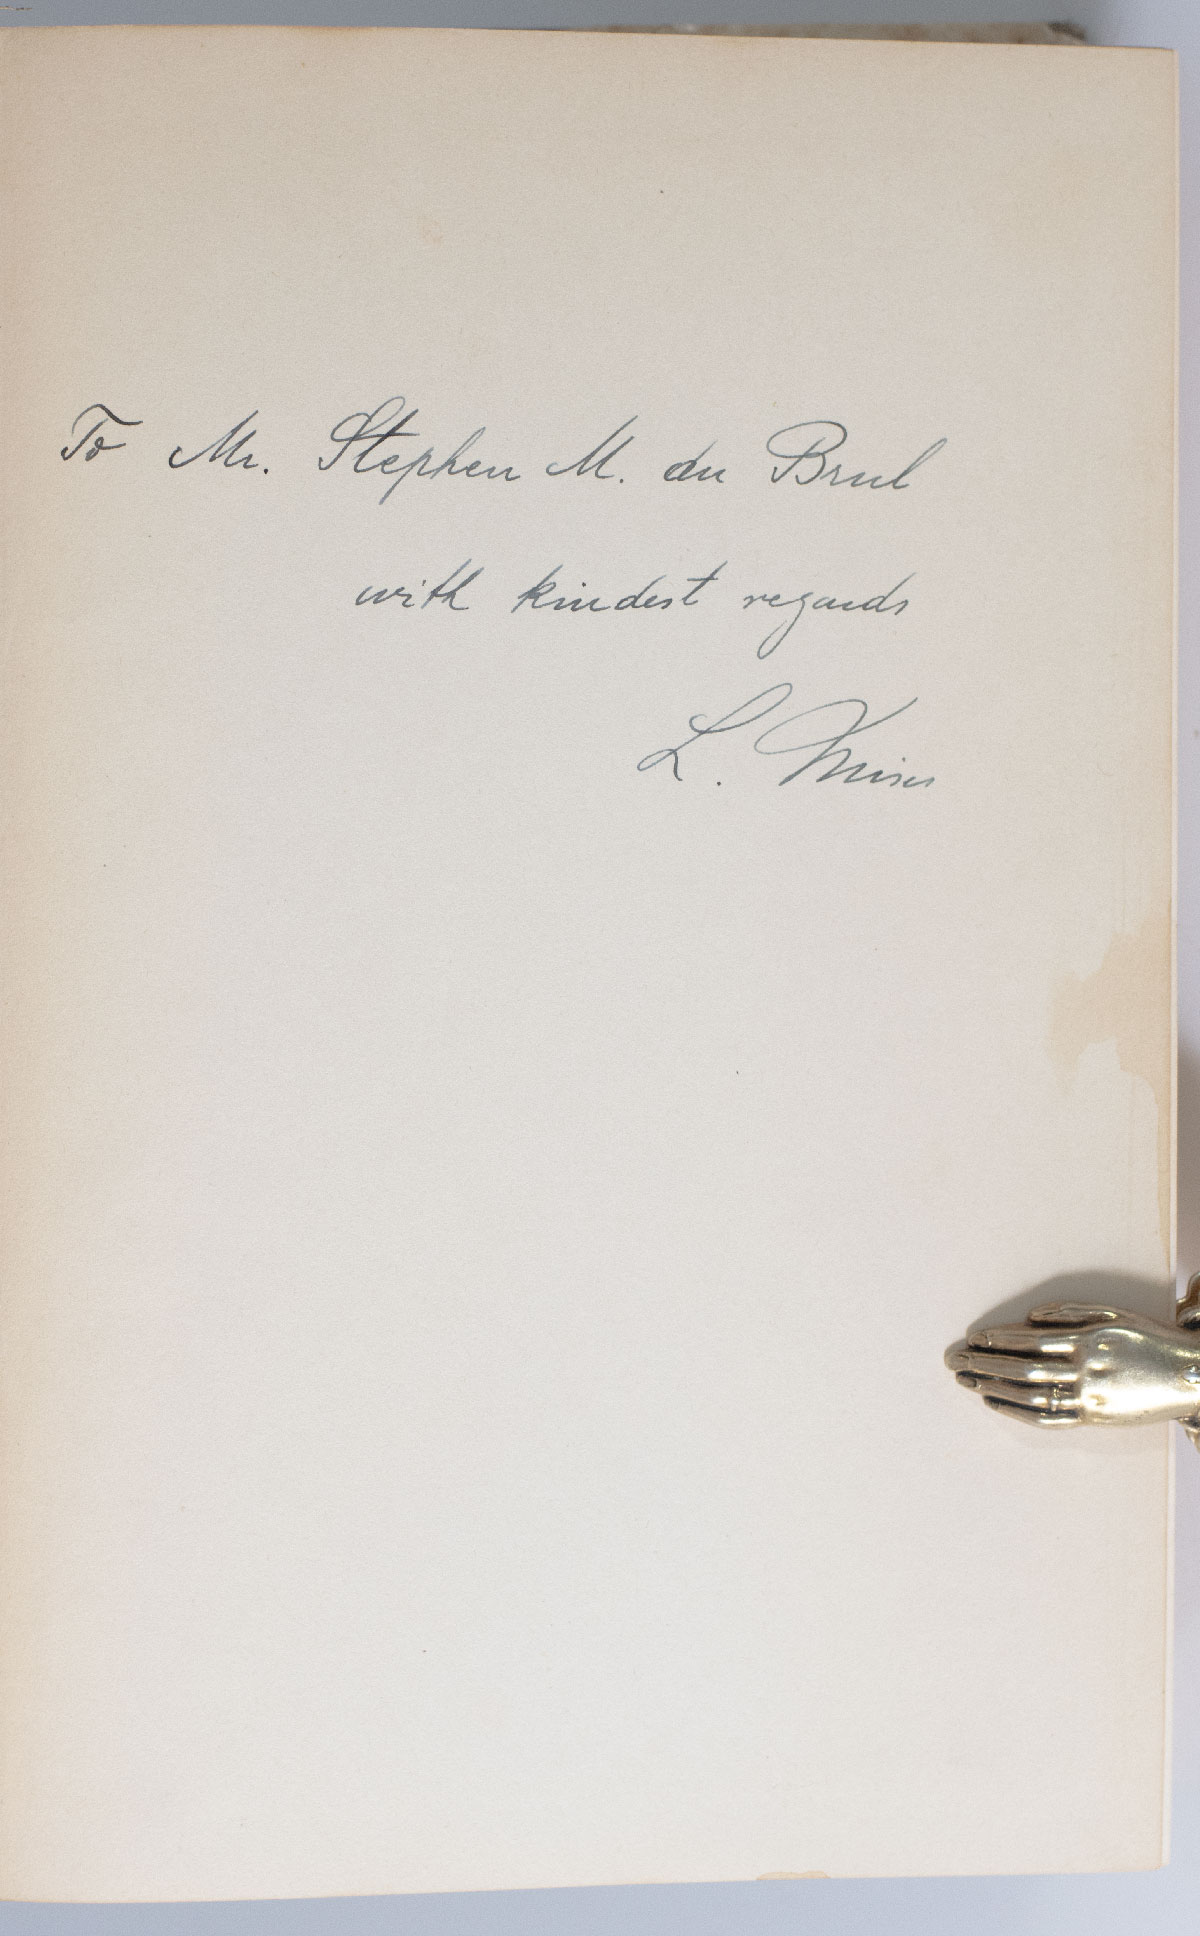 To Mr. Stephen M. du Brul
with kindest regards
L. Mises